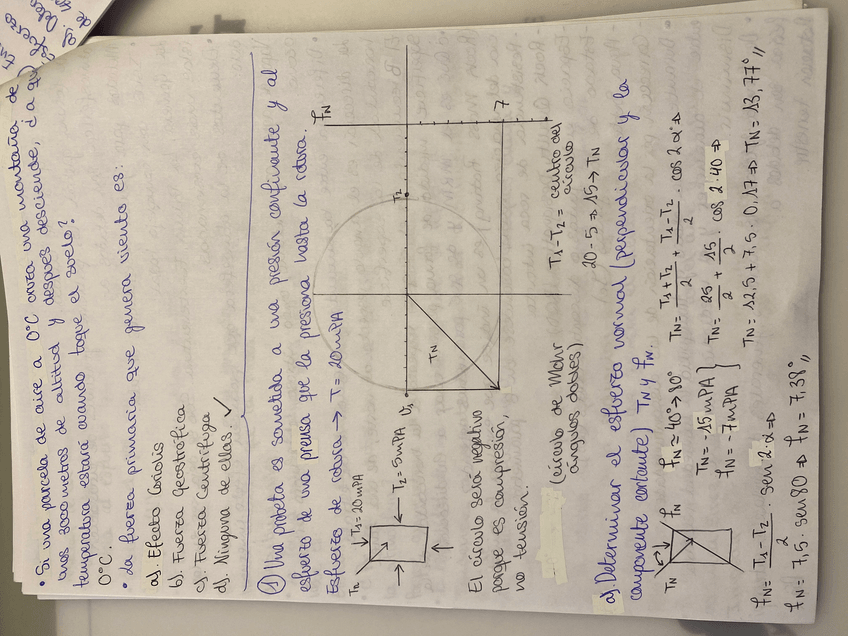 • Si una parcela de aire a 0°C cruza una montaña de
unos 3000 metros de altitud y después desciende, ¿a que
temperatura estará cuando toque el suelo?
0°C.
• La fuerza primaria que genera viento es:
a). Efecto Coriolis
b). Fuerza geostrófica
c). Fuerza Centrífuga
d). Ninguna de ellas. ✓
① Una probeta es sometida a una presión confinante y al
esfuerzo de una prensa que la presiona hasta la rotura.
Esfuerzo de rotura → T = 20mPA
T₁=20mPA
T₂
T₂=5mPA
El círculo será negativo
porque es compresión,
no tensión.
(círculo de Mohr
ángulos dobles)
T_N
T₂
f_N
7
T₁-T₂ = centro del
círculo
20-5 ⇒ 15 → T_N
a). Determinar el esfuerzo normal (perpendicular y la
componente cortante) T_N y f_N.
T_N
f_N
f_N ≃ 40° → 80°
T_N = -15mPA
f_N = -7mPA
T_N = T₁+T₂/2 + T₁-T₂/2 · cos 2α ⇒
T_N = 25/2 + 15/2 · cos 2·40 ⇒
T_N = 12,5 + 7,5 · 0,17 ⇒ T_N = 13,77°,,
f_N = T₁-T₂/2 · sen 2·α ⇒
f_N = 7,5 · sen 80 ⇒ f_N = 7,38°,,